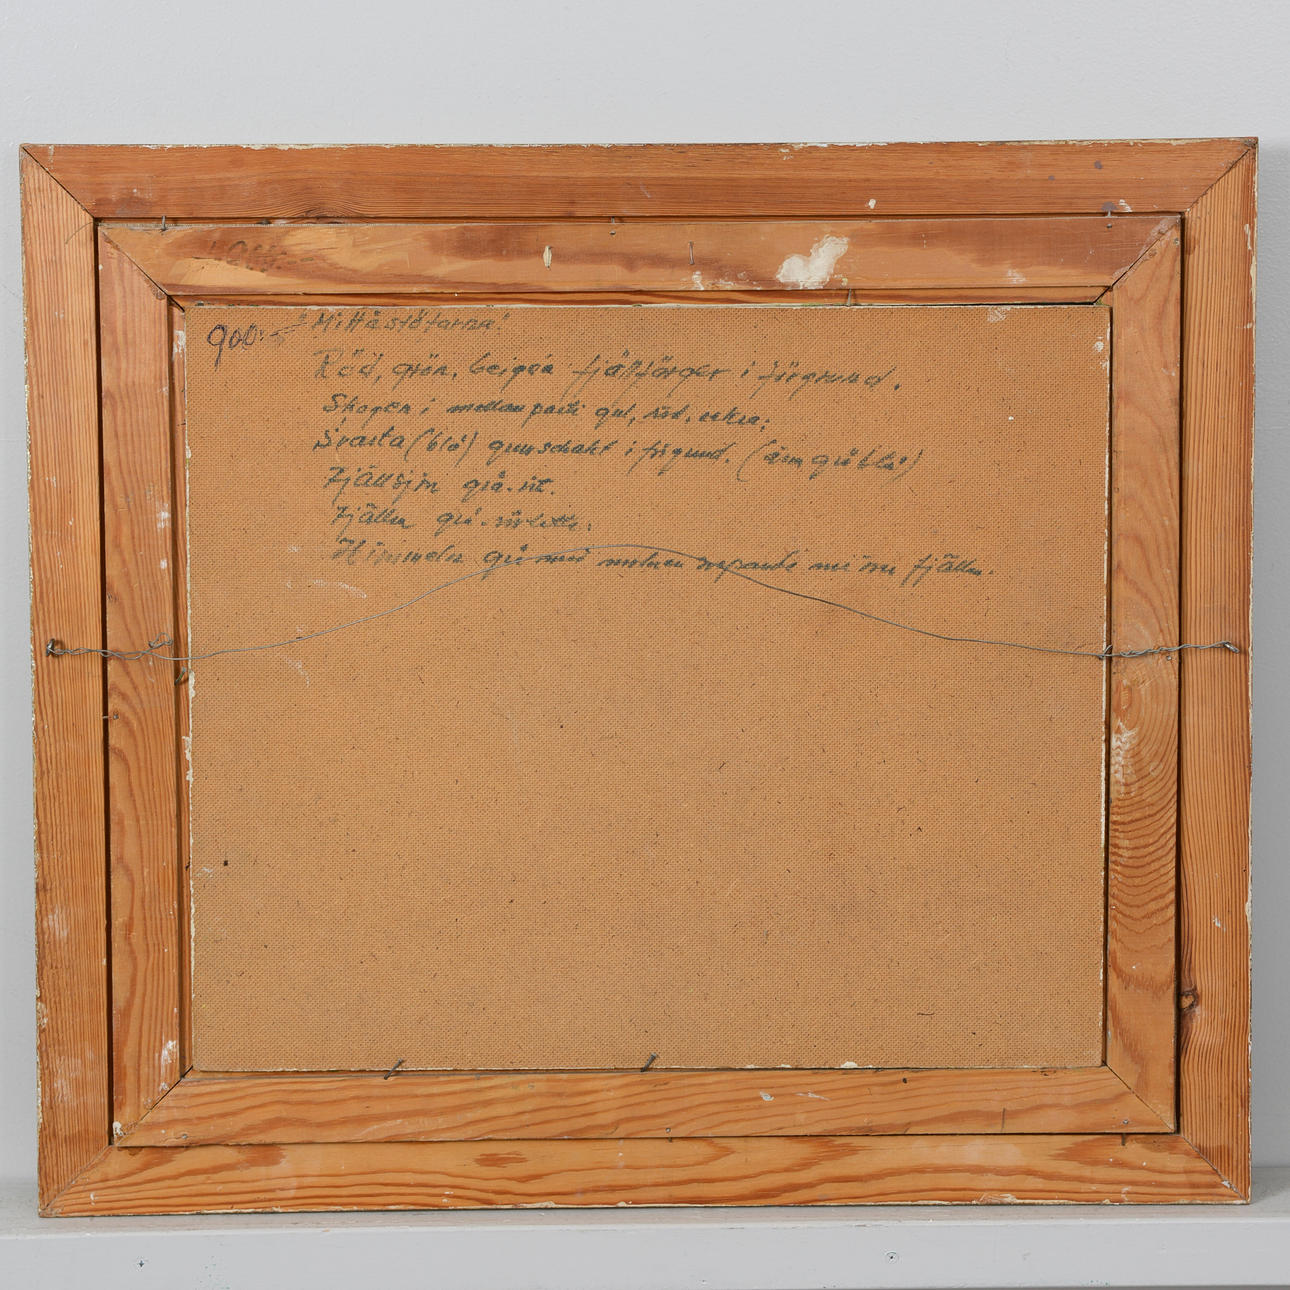 900:- "Mittåstötarna"
Röd, grön, beigea fjällfärger i förgrund.
Skogen i mellanparti gul, röd, ockra;
(blå) i förgrund. (även gråblå)
Fjällsjön grå-vit.
Fjällen grå-violetta.
Himmeln grå med molnen fjällen.